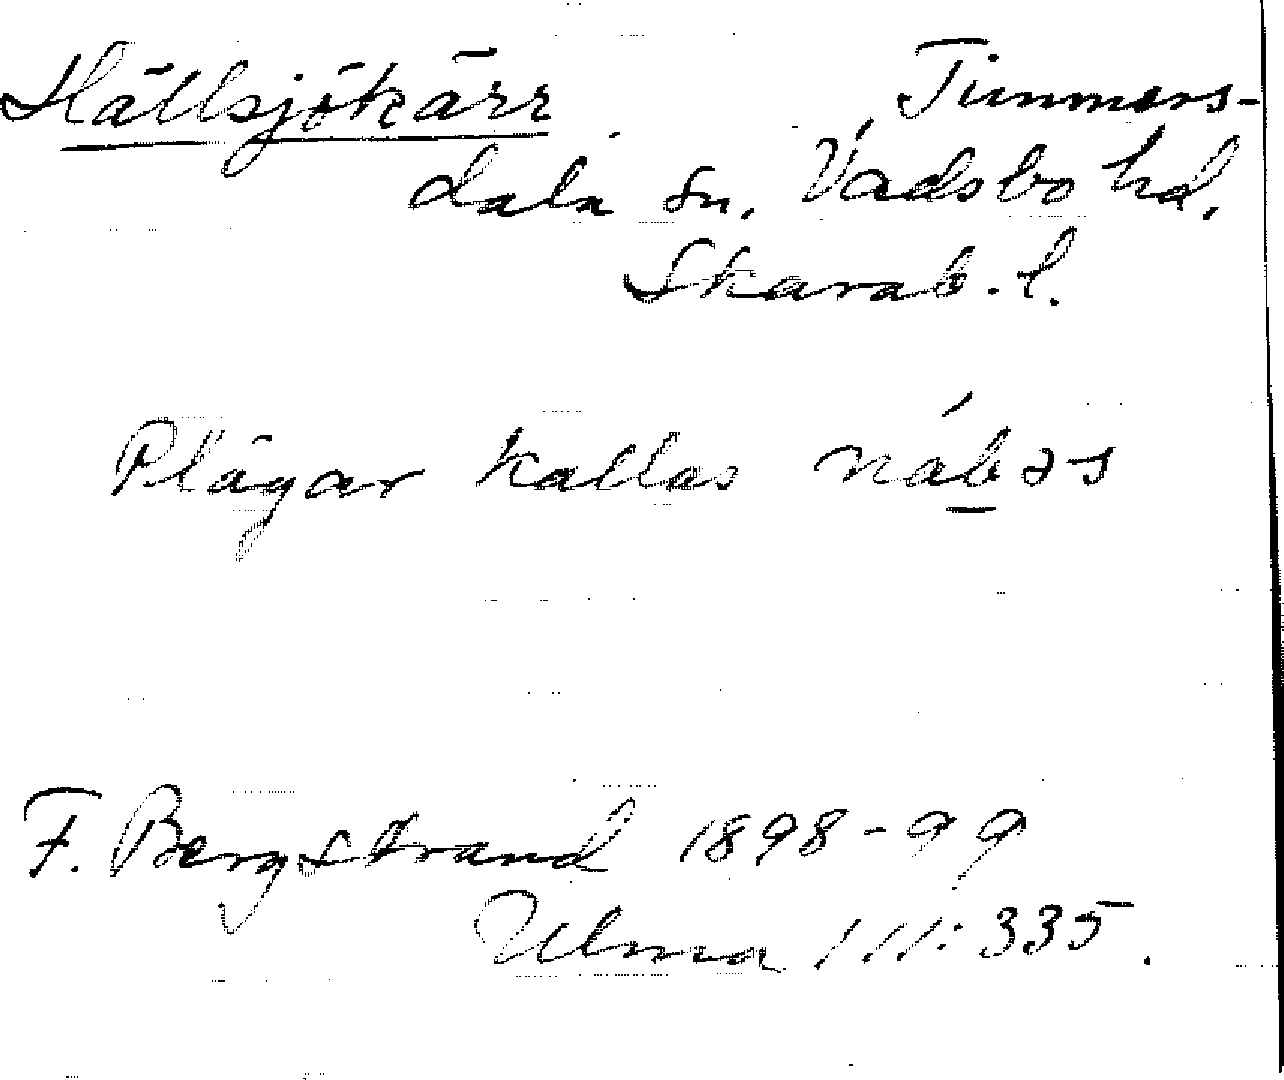 Hällsjökärr. Timmers-
dala sn. Vadsbo hd.
Skarab. l.
Plågar kallas
F. Bergstrand 1898-99
Ulma 111:335.